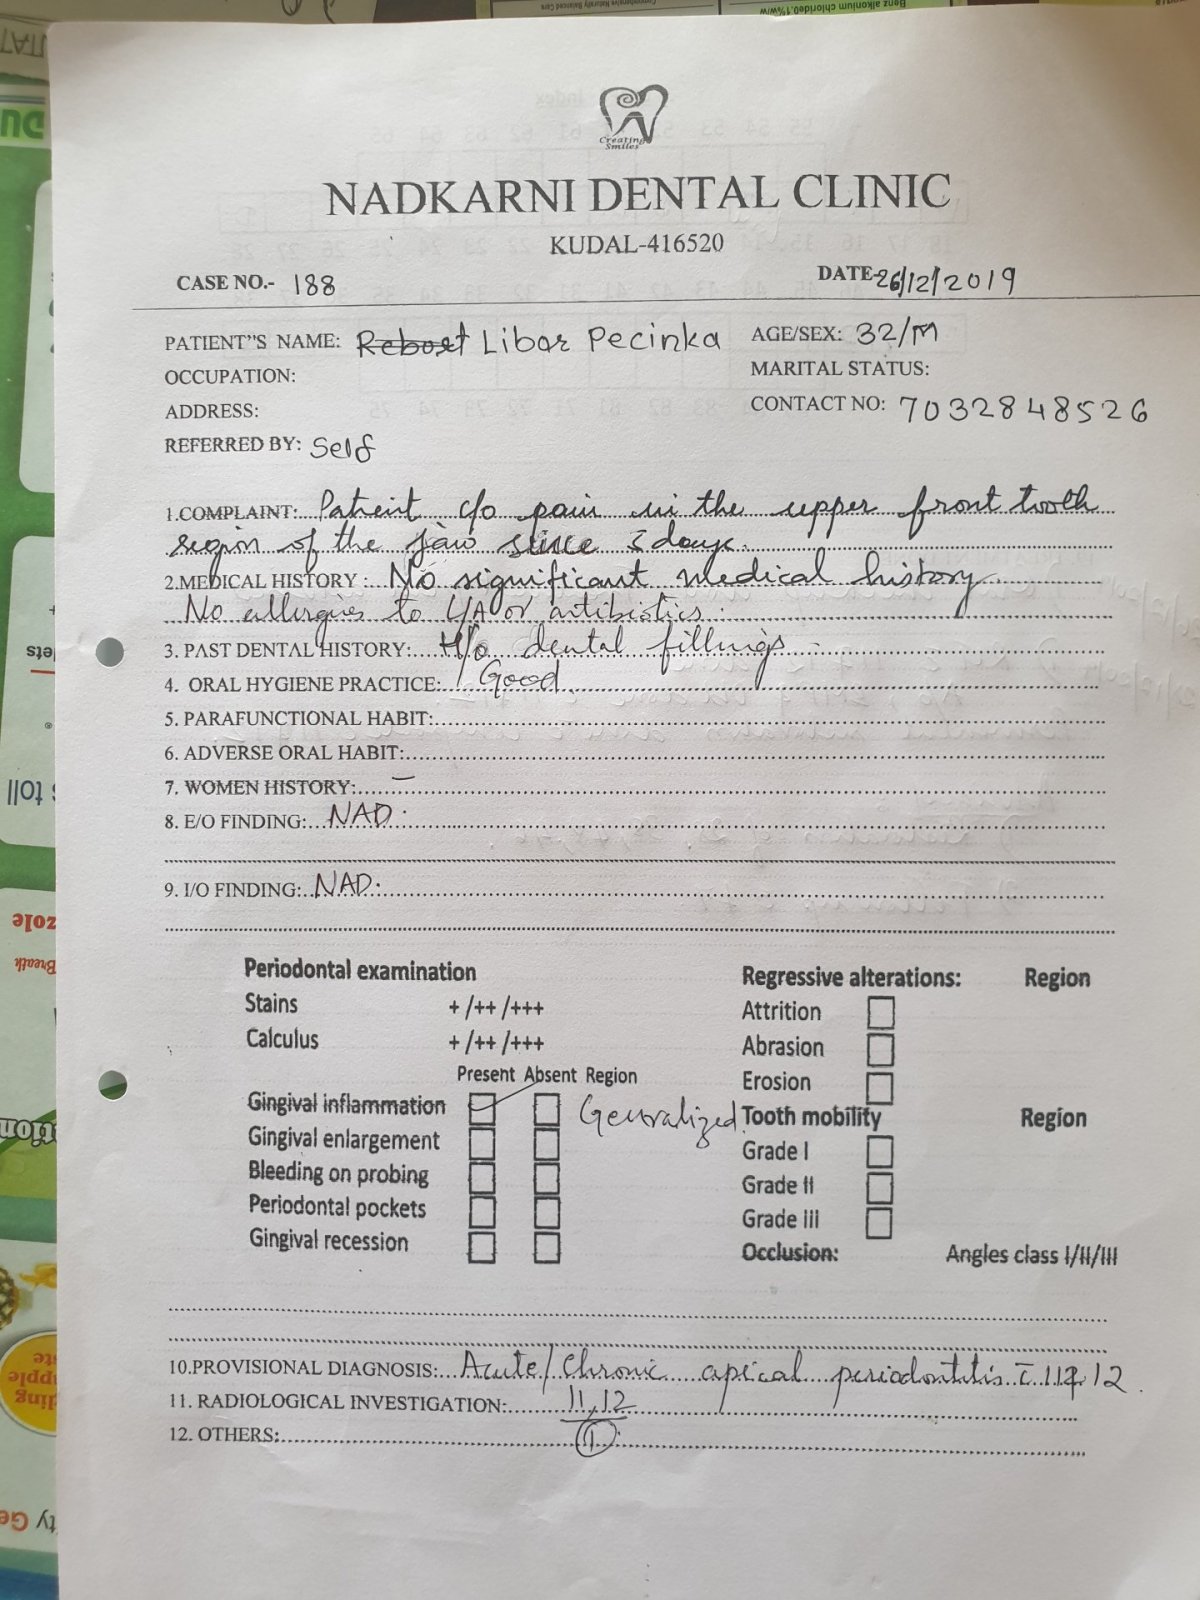 Creating
Smiles
NADKARNI DENTAL CLINIC
KUDAL-416520
CASE NO.- 188 DATE- 26/12/2019
PATIENT"S NAME: Rebort Libor Pecinka AGE/SEX: 32/M
OCCUPATION: MARITAL STATUS:
ADDRESS: CONTACT NO: 7032848526
REFERRED BY: Self
1.COMPLAINT: Patient c/o pain in the upper front tooth
region of the jaw since days.
2.MEDICAL HISTORY: No significant medical history
No allergies to L/A or antibiotics.
3. PAST DENTAL HISTORY: H/o dental fillings
4. ORAL HYGIENE PRACTICE: Good
5. PARAFUNCTIONAL HABIT:
6. ADVERSE ORAL HABIT:
7. WOMEN HISTORY: –
8. E/O FINDING: NAD.
9. I/O FINDING: NAD.
Periodontal examination Regressive alterations: Region
Stains +/++/+++ Attrition
Calculus +/++/+++ Abrasion
Present Absent Region Erosion
Gingival inflammation Generalized. Tooth mobility Region
Gingival enlargement Grade I
Bleeding on probing Grade II
Periodontal pockets Grade III
Gingival recession Occlusion: Angles class I/II/III
10.PROVISIONAL DIAGNOSIS: Acute/Chronic apical periodontitis c̄ 11 12.
11. RADIOLOGICAL INVESTIGATION: 11,12
12. OTHERS: 1